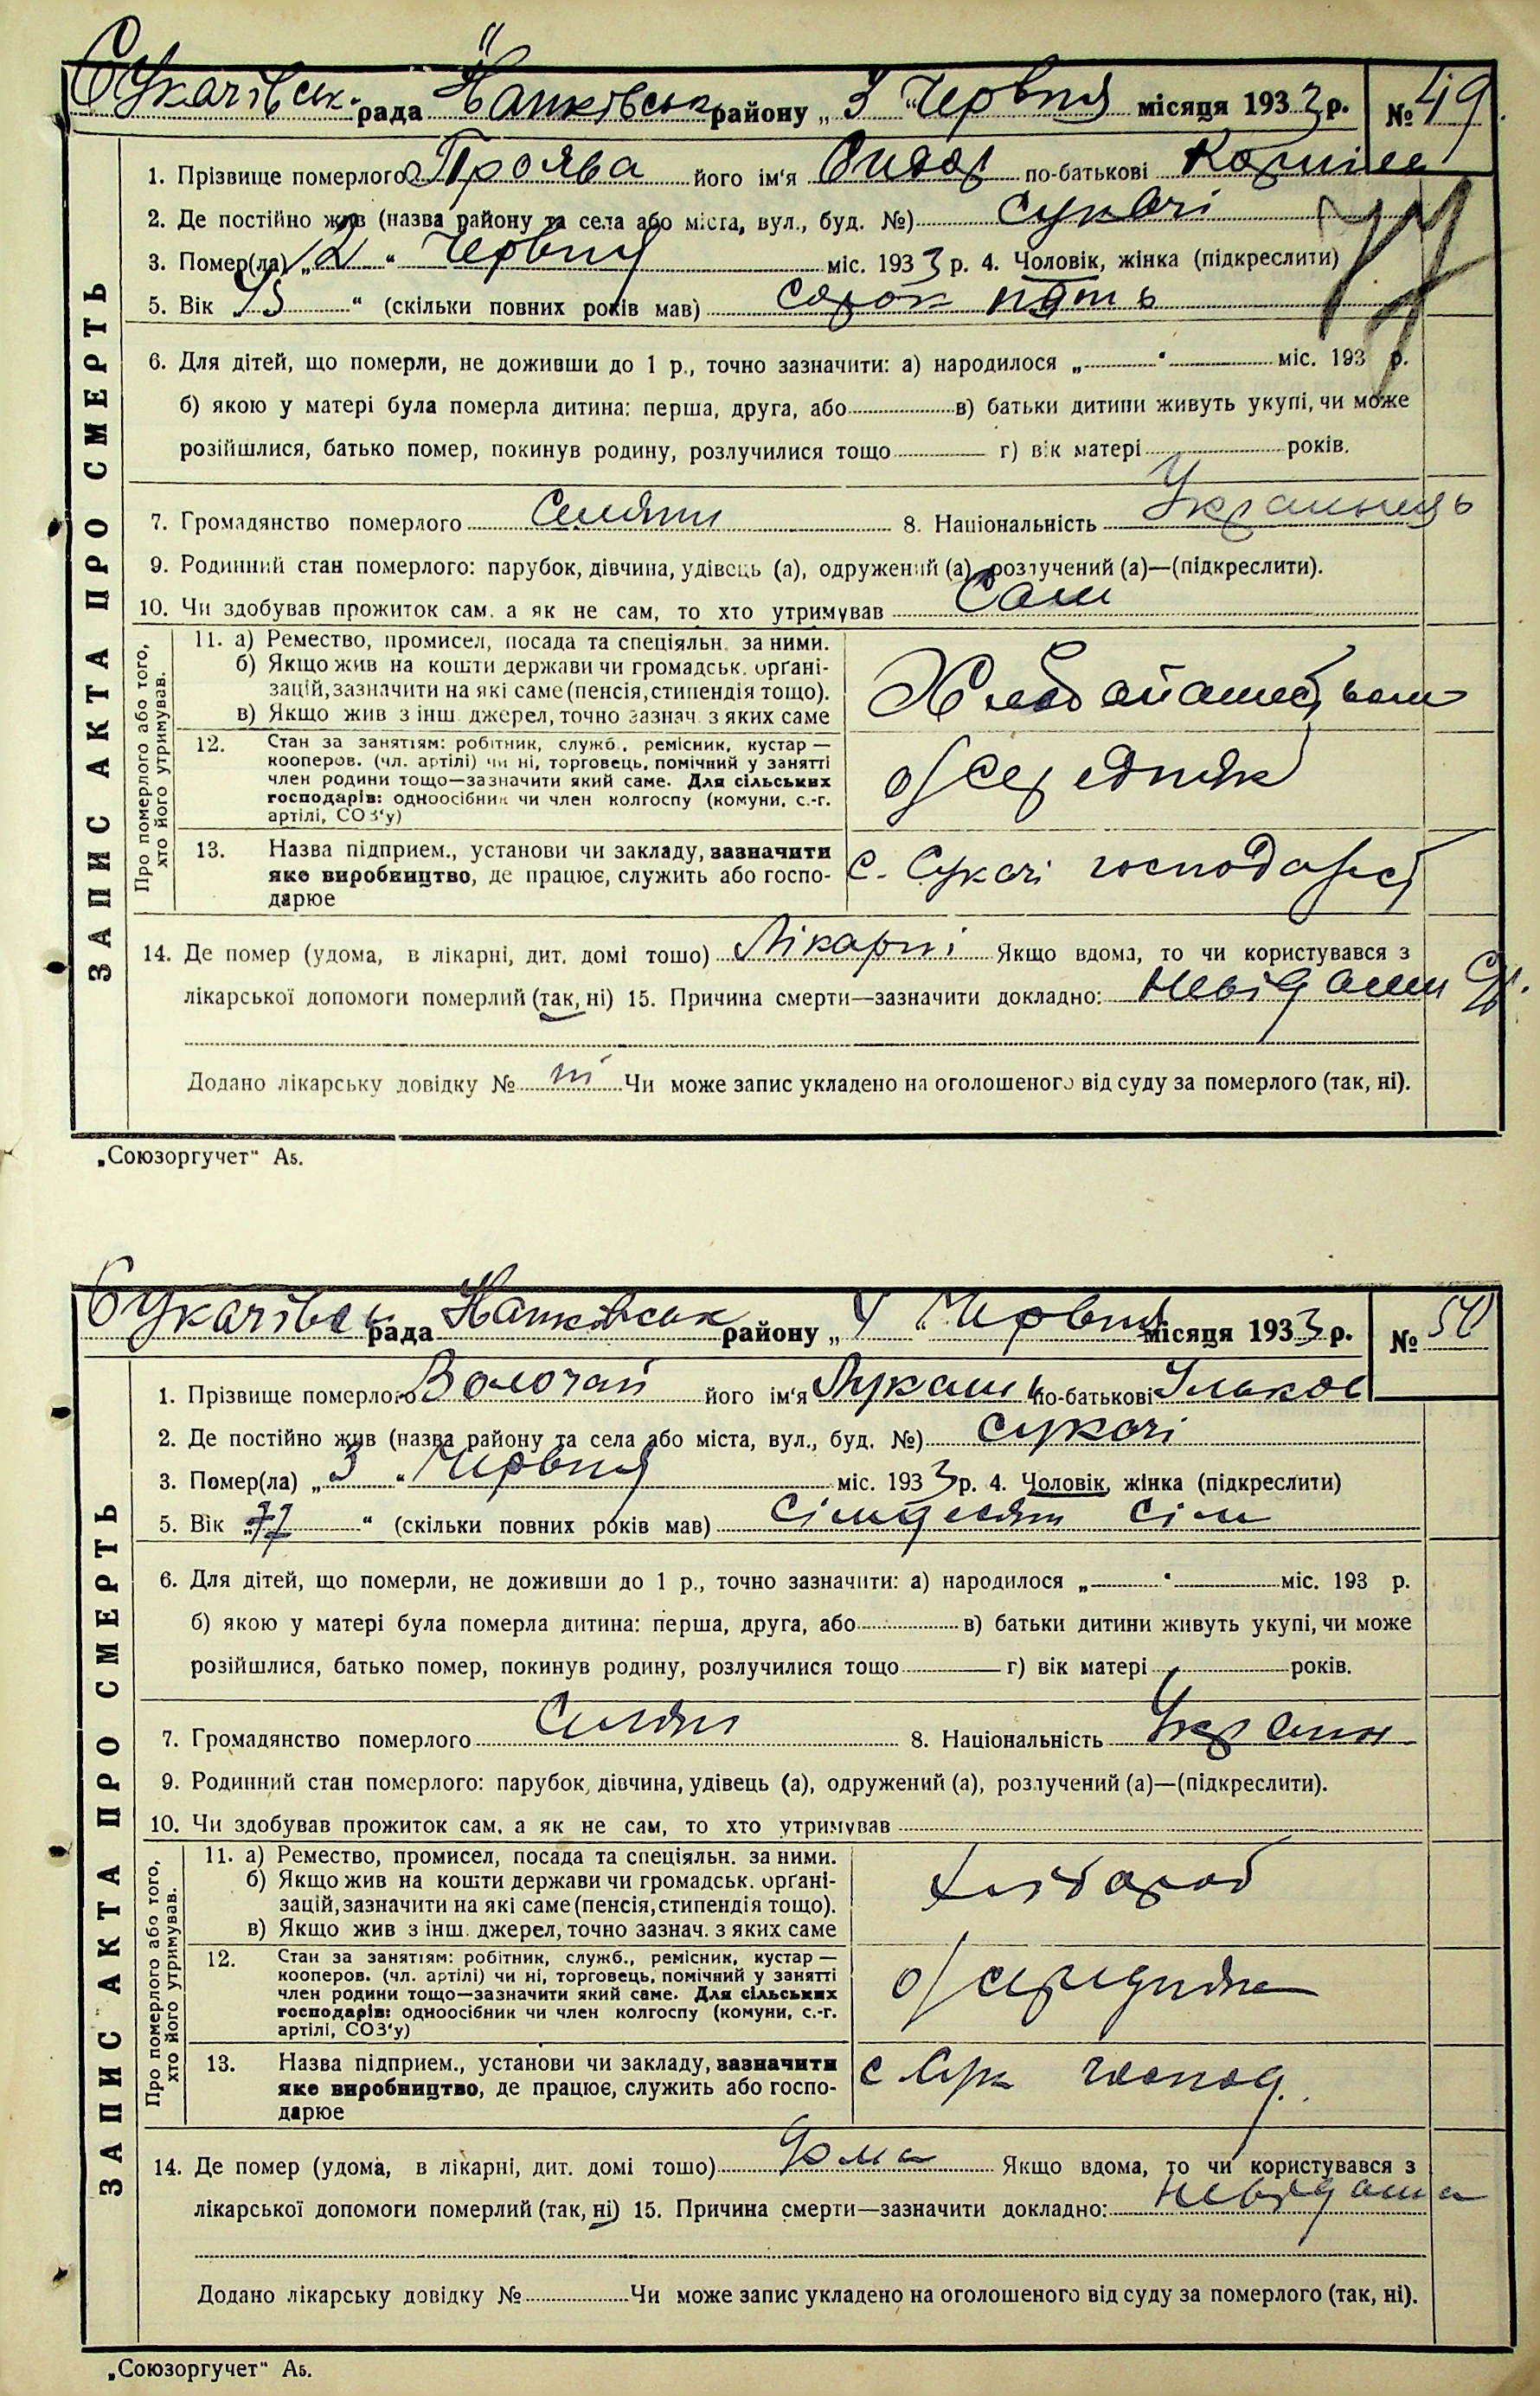 Сукачівськ. рада Іванківськ району „3“ Червня місяця 1933 р. № 49
ЗАПИС АКТА ПРО СМЕРТЬ
1. Прізвище померлого Проява його ім'я Сидор по-батькові
2. Де постійно жив (назва району та села або міста, вул., буд. №) Сукачі
3. Помер(ла) „2“ Червня міс. 1933 р. 4. Чоловік, жінка (підкреслити)
5. Вік 45 “ (скільки повних років мав) сорок пять
6. Для дітей, що померли, не доживши до 1 р., точно зазначити: а) народилося „ “ міс. 193 р.
б) якою у матері була померла дитина: перша, друга, або в) батьки дитини живуть укупі, чи може
розійшлися, батько помер, покинув родину, розлучилися тощо г) вік матері років.
7. Громадянство померлого Селянин 8. Національність Українець
9. Родинний стан померлого: парубок, дівчина, удівець (а), одружений (а), розлучений (а)—(підкреслити).
10. Чи здобував прожиток сам, а як не сам, то хто утримував Сам
Про померлого або того, хто його утримував.
11. а) Ремество, промисел, посада та спеціяльн. за ними.
б) Якщо жив на кошти держави чи громадськ. орґані-
зацій, зазначити на які саме (пенсія, стипендія тощо).
в) Якщо жив з інш. джерел, точно зазнач. з яких саме
12. Стан за заняттям: робітник, служб., ремісник, кустар —
кооперов. (чл. артілі) чи ні, торговець, помічний у занятті
член родини тощо—зазначити який саме. Для сільських
господарів: одноосібник чи член колгоспу (комуни, с.-г.
артілі, СОЗ'у)
о/середняк
13. Назва підприєм., установи чи закладу, зазначити
яке виробництво, де працює, служить або госпо-
дарює
с. Сукачі господарст
14. Де помер (удома, в лікарні, дит. домі тощо) Лікарні Якщо вдома, то чи користувався з
лікарської допомоги померлий (так, ні) 15. Причина смерти—зазначити докладно:
Додано лікарську довідку № ні Чи може запис укладено на оголошеного від суду за померлого (так, ні).
„Союзоргучет“ А5.
Сукачівськ рада Іванківськ району „4“ Червня місяця 1933 р. № 50
ЗАПИС АКТА ПРО СМЕРТЬ
1. Прізвище померлого Волочай його ім'я Лукаш по-батькові Ільков
2. Де постійно жив (назва району та села або міста, вул., буд. №) Сукачі
3. Помер(ла) „3“ Червня міс. 1933 р. 4. Чоловік, жінка (підкреслити)
5. Вік „77“ (скільки повних років мав) сімдесят сім
6. Для дітей, що померли, не доживши до 1 р., точно зазначити: а) народилося „ “ міс. 193 р.
б) якою у матері була померла дитина: перша, друга, або в) батьки дитини живуть укупі, чи може
розійшлися, батько помер, покинув родину, розлучилися тощо г) вік матері років.
7. Громадянство померлого Селян 8. Національність Україн
9. Родинний стан померлого: парубок, дівчина, удівець (а), одружений (а), розлучений (а)—(підкреслити).
10. Чи здобував прожиток сам, а як не сам, то хто утримував
Про померлого або того, хто його утримував.
11. а) Ремество, промисел, посада та спеціяльн. за ними.
б) Якщо жив на кошти держави чи громадськ. орґані-
зацій, зазначити на які саме (пенсія, стипендія тощо).
в) Якщо жив з інш. джерел, точно зазнач. з яких саме
хлібороб
12. Стан за заняттям: робітник, служб., ремісник, кустар —
кооперов. (чл. артілі) чи ні, торговець, помічний у занятті
член родини тощо—зазначити який саме. Для сільських
господарів: одноосібник чи член колгоспу (комуни, с.-г.
артілі, СОЗ'у)
о/середняк
13. Назва підприєм., установи чи закладу, зазначити
яке виробництво, де працює, служить або госпо-
дарює
с. Сук господ.
14. Де помер (удома, в лікарні, дит. домі тощо) Дома Якщо вдома, то чи користувався з
лікарської допомоги померлий (так, ні) 15. Причина смерти—зазначити докладно: невідома
Додано лікарську довідку № Чи може запис укладено на оголошеного від суду за померлого (так, ні).
„Союзоргучет“ А5.